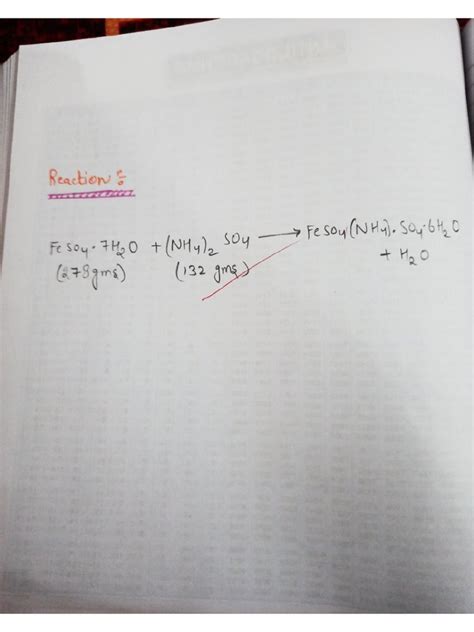 Reaction :
FeSO4·7H2O + (NH4)2 SO4 → FeSO4·(NH4)·SO4·6H2O
(278gms) (132 gms) + H2O